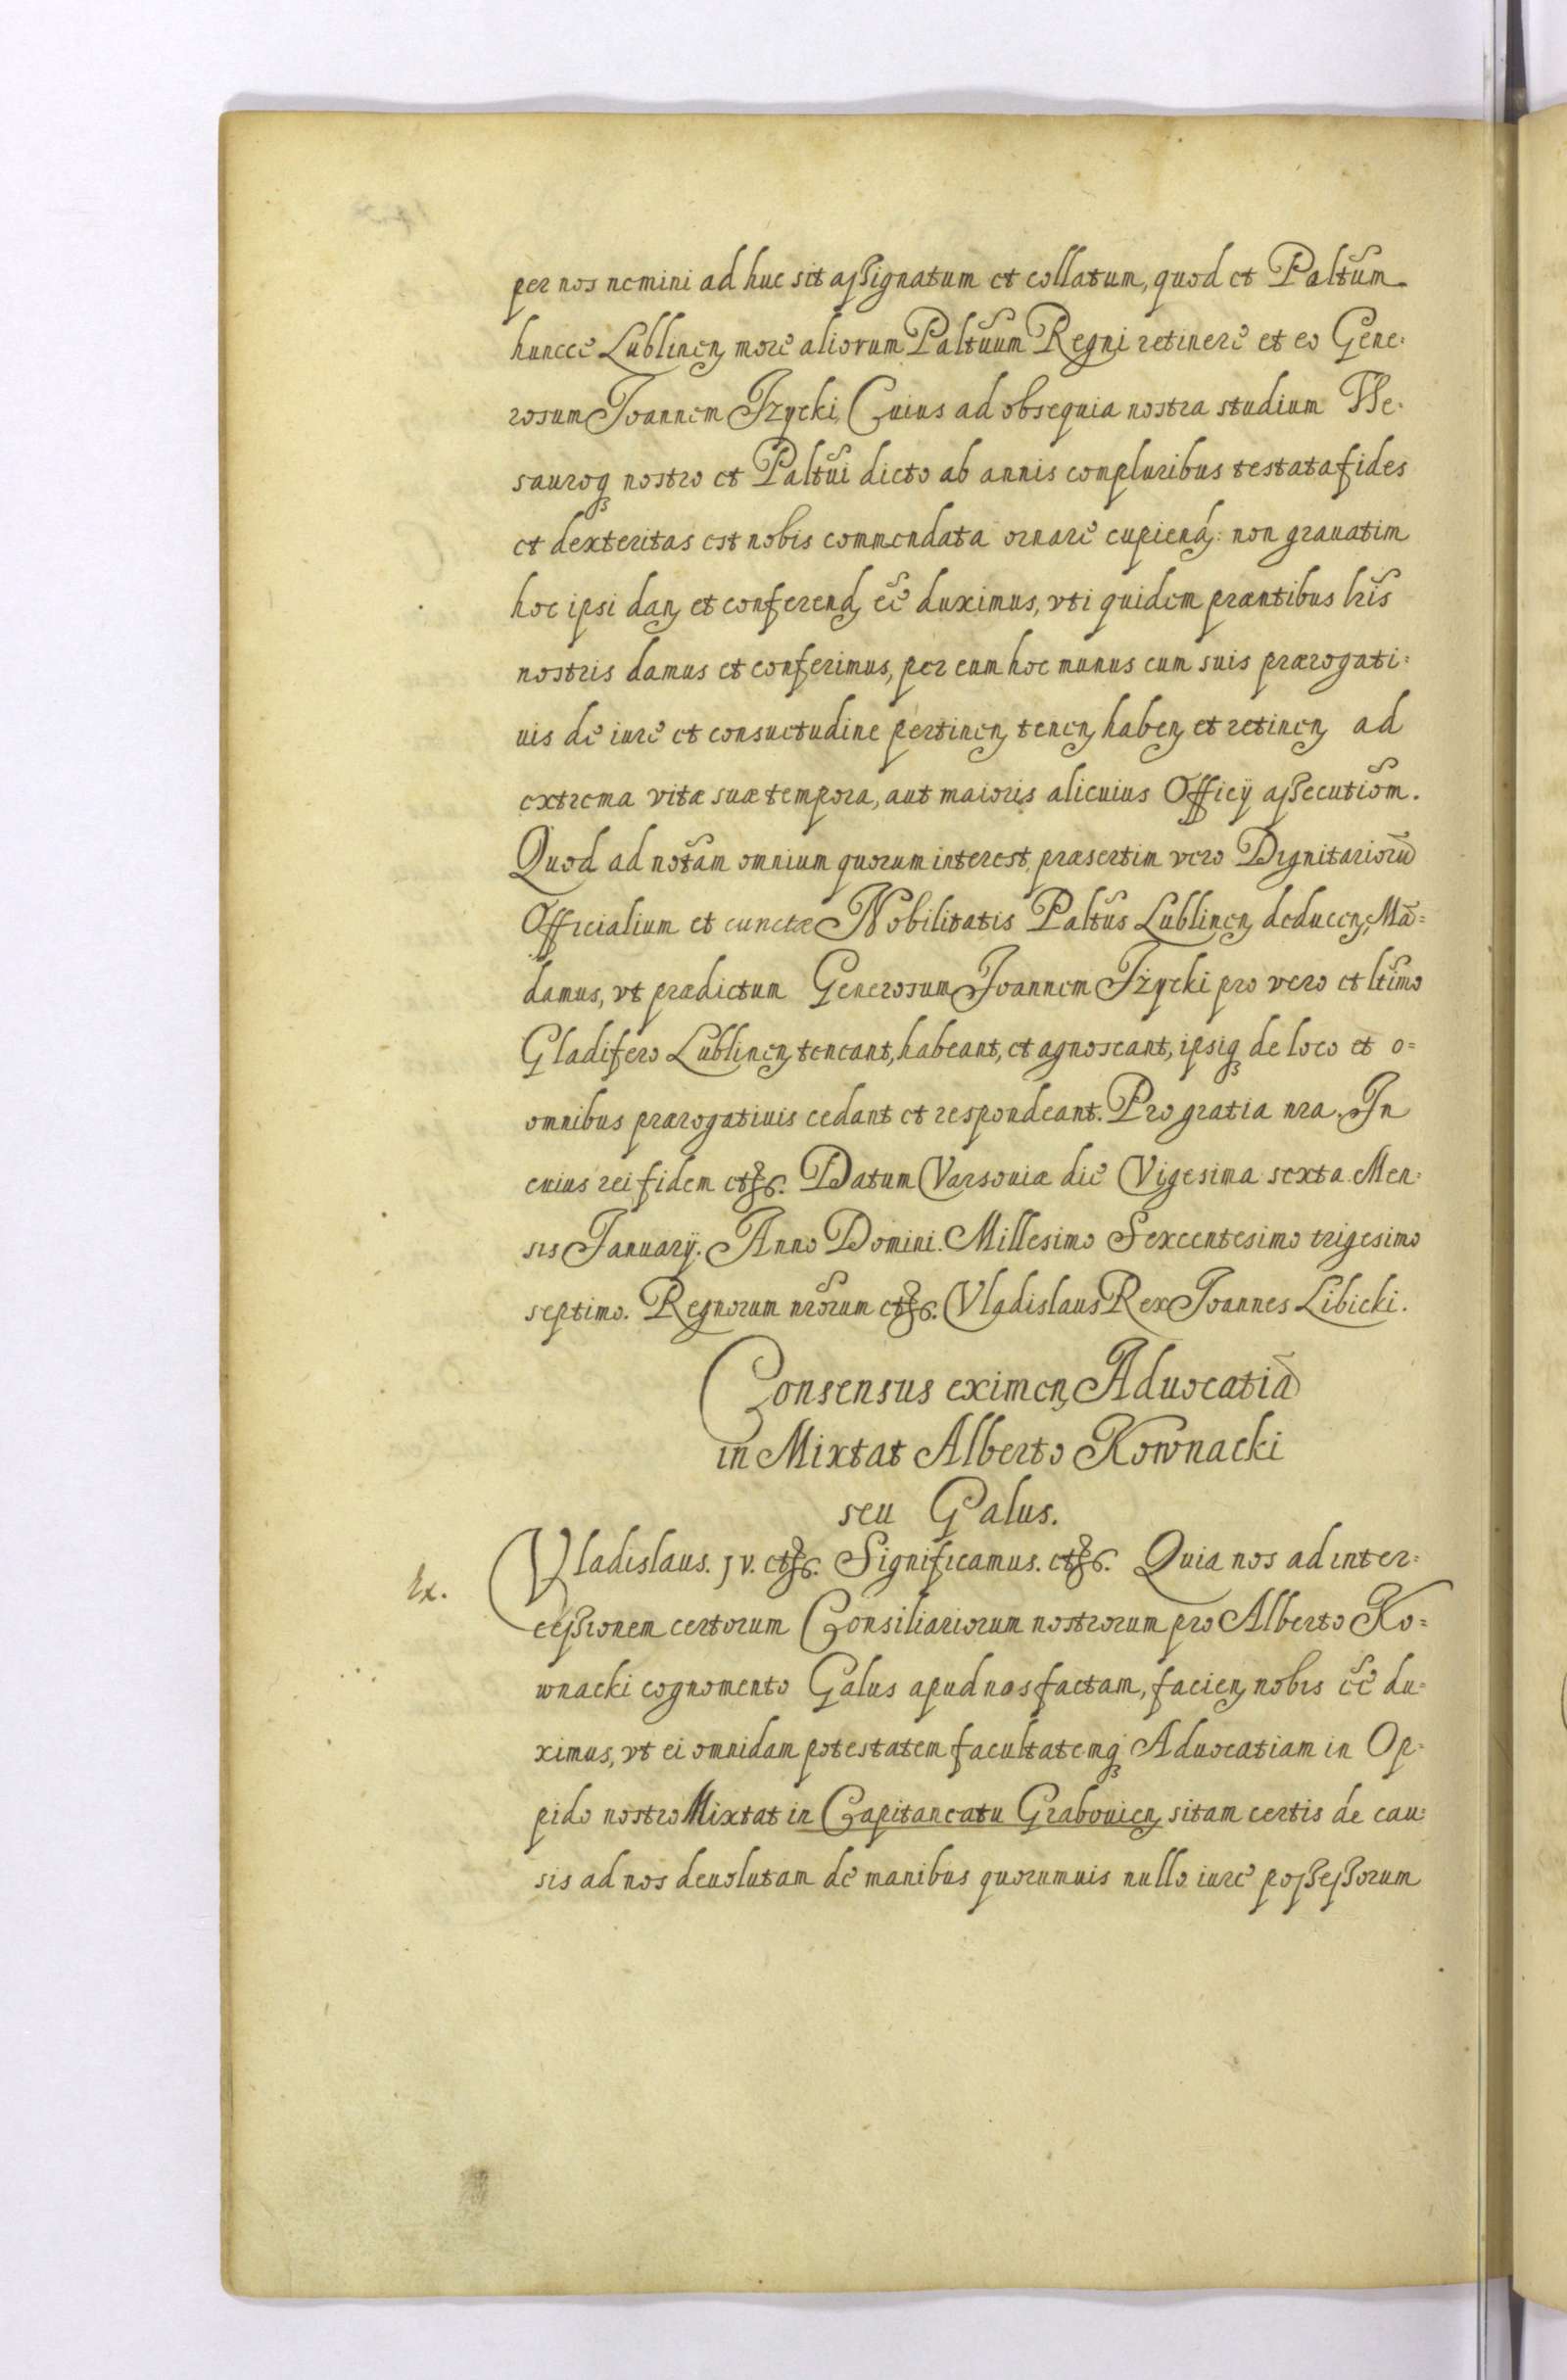 per nos nemini ad huc sit assignatum et collatum, quod et Paltum
huncce Lublinen more aliorum Paltuum Regni retinere et eo Gene:
rosum Joannem Jzycki, Cuius ad obsequia nostra studium The:
sauroq nostro et Paltui dicto ab annis compluribus testata fides
et dexteritas est nobis commendata ornare cupien: non grauatim
hoc ipsi dan et conferend ee duximus, vti quidem præntibus lris
nostris damus et conferimus, per eum hoc munus cum suis prærogati:
uis de iure et consuetudine pertinen tenen haben et retinen ad
extrema vitæ suæ tempora, aut maioris alicuius Officÿ assecutiom.
Quod ad notam omnium quorum interest, præsertim vero Dignitarioru
Officialium et cunctæ Nobilitatis Paltus Lublinen deducen, Mā=
damus, vt prædictum Generosum Joannem Jżycki pro vero et ltimo
Gladifero Lublinen teneant, habeant, et agnoscant, ipsiq de loco et o=
omnibus prærogatiuis cedant et respondeant. Pro gratia nra. In
cuius rei fidem etc. Datum Varsouiæ die Vigesima sexta Men:
sis Januarÿ. Anno Domini. Millesimo Sexcentesimo trigesimo
septimo. Regnorum nrorum etc. Vladislaus Rex Joannes Libicki.
Consensus eximen Aduocatiā
in Mixtat Alberto Kownacki
seu Galus.
Ex. Vladislaus. JV. etc. Significamus. etc. Quia nos ad inter:
cessionem certorum Consiliariorum nostrorum pro Alberto Ko=
wnacki cognomento Galus apud nos factam, facien nobis ee du:
ximus, vt ei omnidam potestatem facultatemq Aduocatiam in Op:
pido nostro Mixtat in Capitaneatu Grabouien sitam certis de cau:
sis ad nos deuolutam de manibus quorumuis nullo iure possessorum